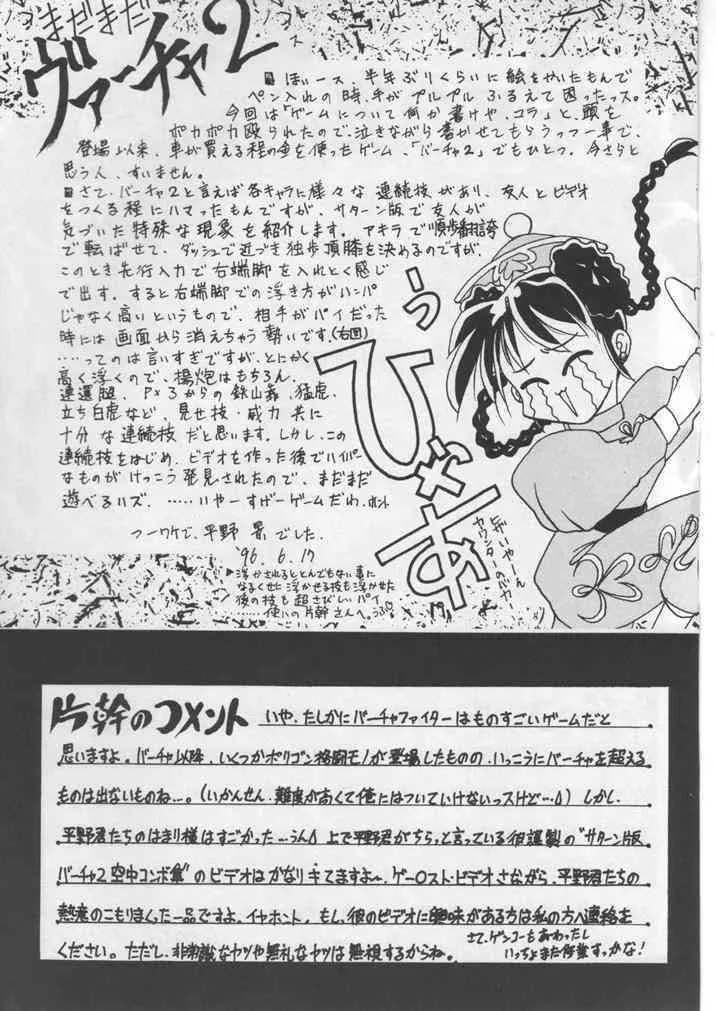 まだまだ
ヴァーチャ2
■ほぃース、半年ぶりくらいに絵をかいたもんで
ペン入れの時、手がプルプルふるえて困ったっス。
今回は「ゲームについて何か書けや、コラ」と、頭を
ポカポカ殴られたので、泣きながら書かせてもらうっつー事で、
登場以来、車が買える程の金を使ったゲーム、「バーチャ2」でもひとつ。今さらと
思う人、すいません。
■さて、バーチャ2と言えば各キャラに様々な連続技があり、友人とビデオ
をつくる程にハマったもんですが、サターン版で友人が
気づいた特殊な現象を紹介します。アキラで順歩翻誇
で転ばせて、ダッシュで近づき独歩頂膝を決めるのですが、
このとき先行入力で右端脚を入れとく感じ
で出す。すると右端脚での浮き方がハンパ
じゃなく高いというもので、相手がパイだった
時には画面から消えちゃう勢いです。(右図)
……ってのは言いすぎですが、とにかく
高く浮くので、揚炮はもちろん、
連還腿、PK3からの鉄山靠、猛虎、
立ち白虎など、見せ技・威力共に
十分な連続技だと思います。しかし、この
連続技をはじめ、ビデオを作った後でハイパー
なものがけっこう発見されたので、まだまだ
遊べるハズ。……いやーすげーゲームだわ、ホント
つーワケで、平野 でした。
'96.6.17
うっ
ひゃあ
ヒザいやーん
カウンターのバカ
▶浮かされるととんでもない事に
なるくせに浮かせる技も浮かせた
後の技も超さびしいパイ
……使いの片幹さんへ。うふ♡
片幹のコメント
いや、たしかにバーチャファイターはものすごいゲームだと
思いますよ。バーチャ以降、いくつかポリゴン格闘モノが登場したものの、いっこうにバーチャを超える
ものは出ないものね…。(いかんせん、難度が高くて俺にはついていけないっスけど…)しかし、
平野君たちのはまり様はすごかった…うん 上で平野君がちらっと言っている彼謹製の“サターン版
バーチャ2空中コンボ集”のビデオはかなりキてますよ~、ゲーロスト・ビデオさながら、平野君たちの
熱意のこもりまくった一品ですよ、イヤホント。もし、彼のビデオに興味がある方は私の方へ連絡を
ください。ただし、非常識なヤツや無礼なヤツは無視するからね。
さて、ゲンコーもあわったし
いっちょまた修業すっかな!